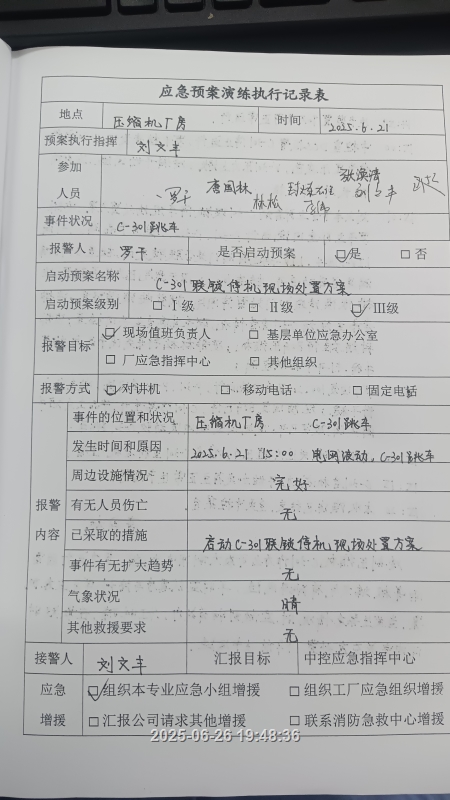 应急预案演练执行记录表
地点 压缩机厂房 时间 2025.6.21
预案执行指挥 刘文丰
参加
人员 罗干 唐国林 林松
事件状况 C-301跳车
报警人 罗干 是否启动预案 ☑是 □否
启动预案名称 C-301联锁停机现场处置方案
启动预案级别 □Ⅰ级 □Ⅱ级 ☑Ⅲ级
报警目标 ☑现场值班负责人 □基层单位应急办公室
□厂应急指挥中心 □其他组织
报警方式 ☑对讲机 □移动电话 □固定电话
报警
内容
事件的位置和状况 压缩机厂房 C-301跳车
发生时间和原因 2025.6.21 15:00 电网波动,C-301跳车
周边设施情况 完好
有无人员伤亡 无
已采取的措施 启动C-301联锁停机现场处置方案
事件有无扩大趋势 无
气象状况 晴
其他救援要求 无
接警人 刘文丰 汇报目标 中控应急指挥中心
应急
增援
☑组织本专业应急小组增援 □组织工厂应急组织增援
□汇报公司请求其他增援 □联系消防急救中心增援
2025-06-26 19:48:36